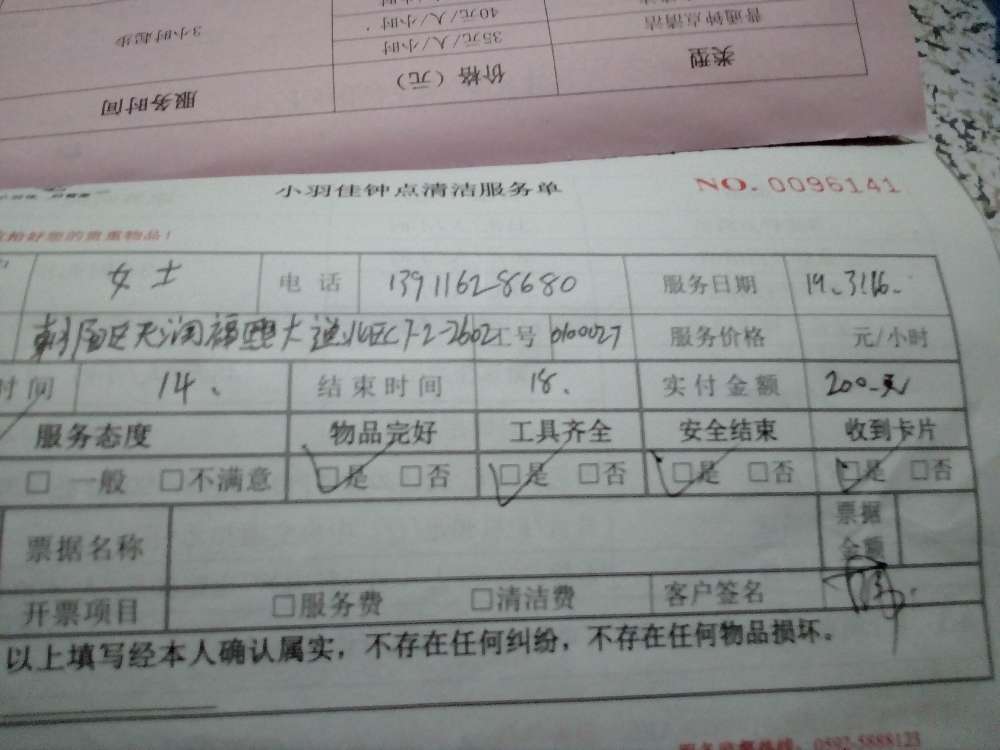 3小时起步 40元/人/小时 普通钟点清洁
35元/人/小时
服务时间 价格（元） 类型
小羽佳钟点清洁服务单 NO. 0096141
好您的贵重物品！
女士 电话 13911628680 服务日期 19.3.16.
朝阳区天润福熙大道北区C7-2-2602 工号 0100027 服务价格 元/小时
时间 14. 结束时间 18. 实付金额 200元
服务态度 物品完好 工具齐全 安全结束 收到卡片
□ 一般 □不满意 □是 □否 □是 □否 □是 □否 □是 □否
票据名称 票据金额
开票项目 □服务费 □清洁费 客户签名
以上填写经本人确认属实，不存在任何纠纷，不存在任何物品损坏。
0592-5888123